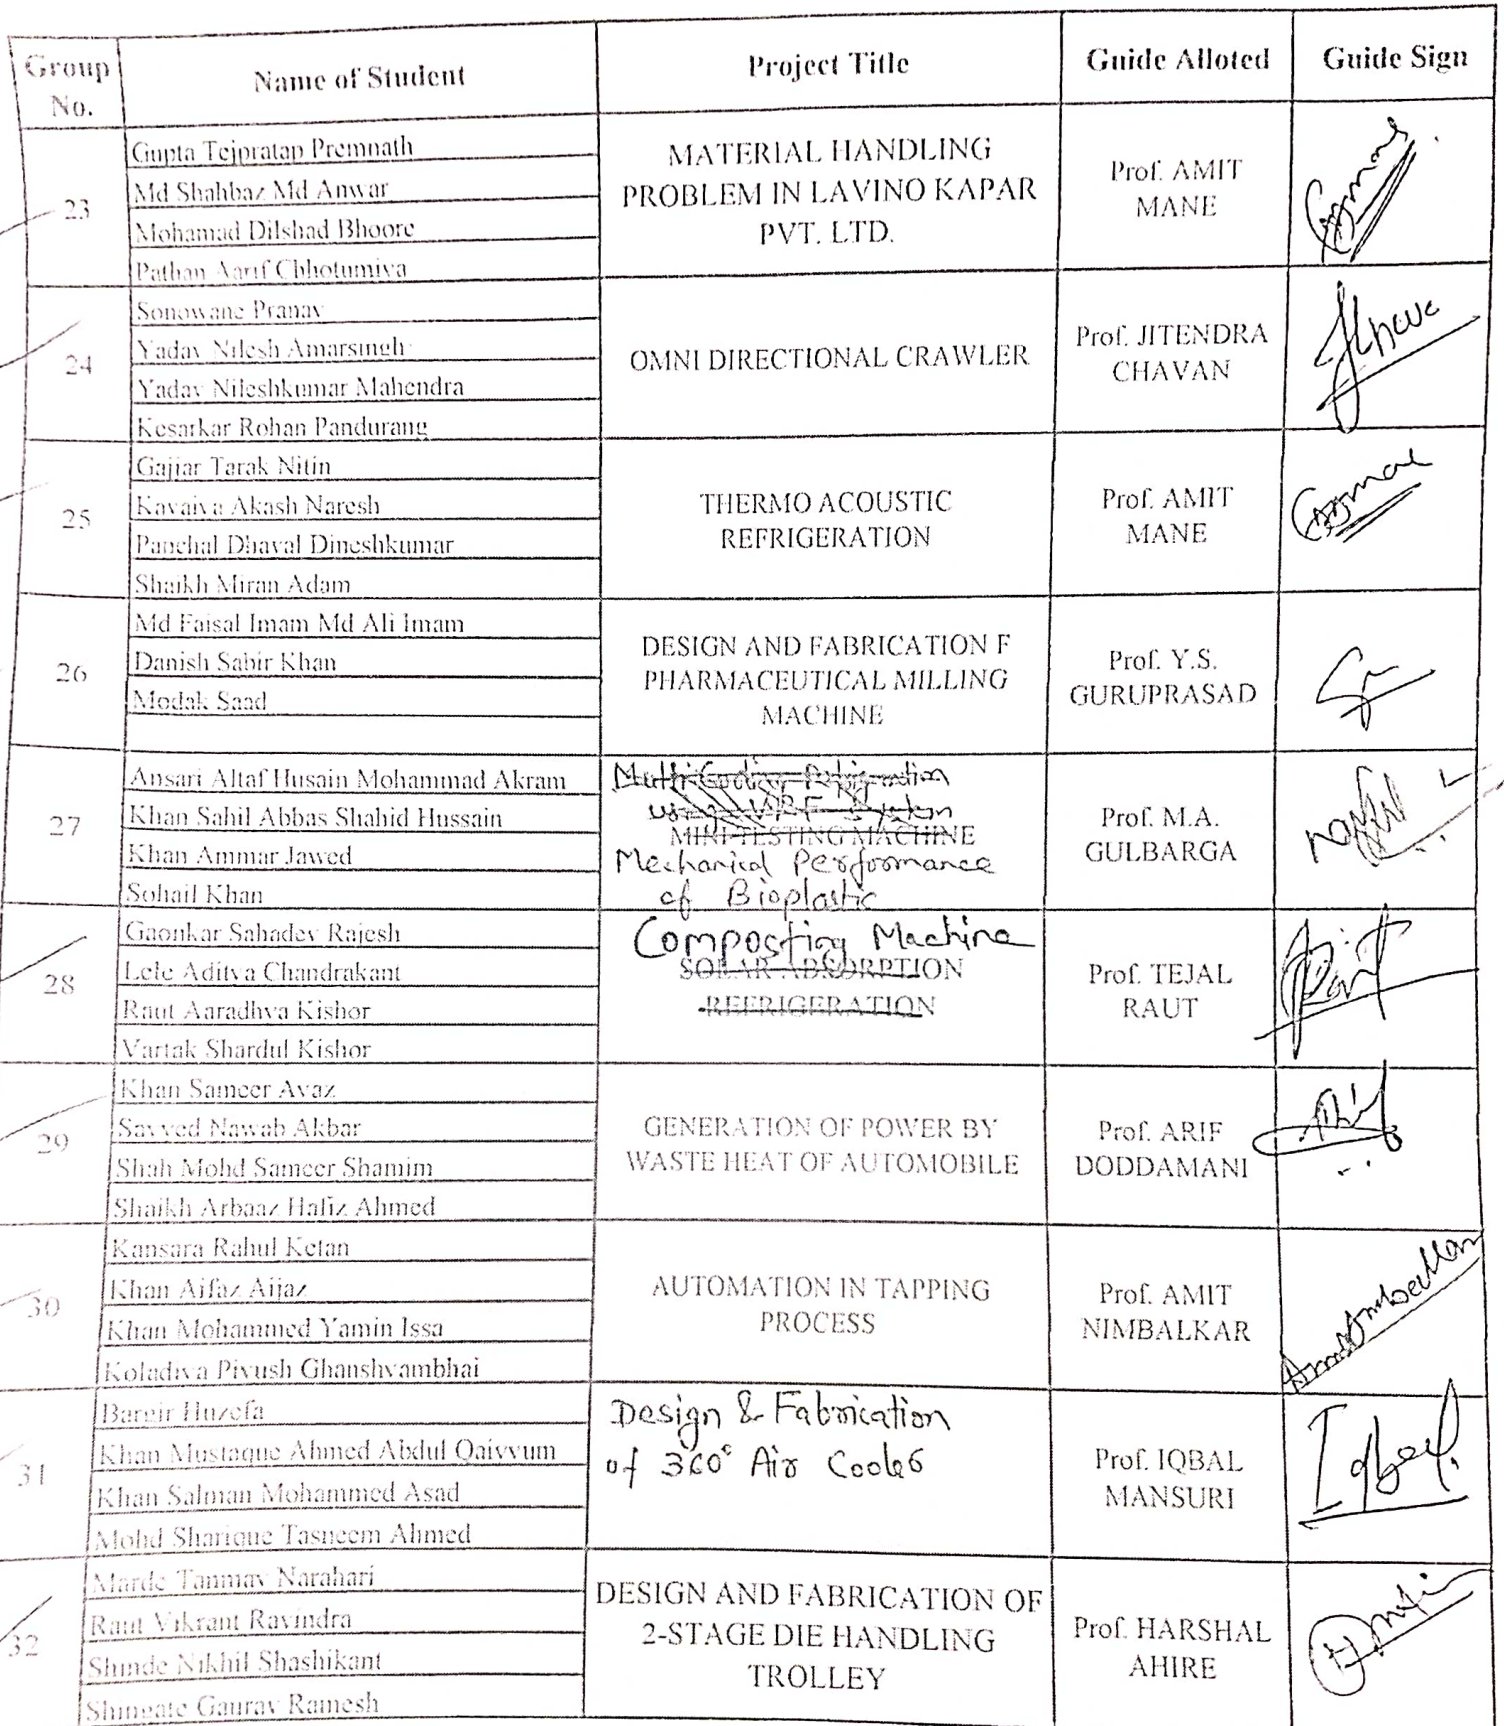 Group No. Name of Student Project Title Guide Alloted Guide Sign
23
Gupta Tejpratap Premnath
Md Shahbaz Md Anwar
Mohamad Dilshad Bhoore
Pathan Aarif Chhotumiya
MATERIAL HANDLING
PROBLEM IN LAVINO KAPAR
PVT. LTD.
Prof. AMIT
MANE
24
Sonowane Pranav
Yadav Nilesh Amarsingh
Yadav Nileshkumar Mahendra
Kesarkar Rohan Pandurang
OMNI DIRECTIONAL CRAWLER
Prof. JITENDRA
CHAVAN
25
Gajjar Tarak Nitin
Kavaiya Akash Naresh
Panchal Dhaval Dineshkumar
Shaikh Miran Adam
THERMO ACOUSTIC
REFRIGERATION
Prof. AMIT
MANE
26
Md Faisal Imam Md Ali Imam
Danish Sabir Khan
Modak Saad
DESIGN AND FABRICATION F
PHARMACEUTICAL MILLING
MACHINE
Prof. Y.S.
GURUPRASAD
27
Ansari Altaf Husain Mohammad Akram
Khan Sahil Abbas Shahid Hussain
Khan Ammar Jawed
Sohail Khan
using VRF System
MINI TESTING MACHINE
Mechanical Performance
of Bioplastic
Prof. M.A.
GULBARGA
28
Gaonkar Sahadev Rajesh
Lele Aditya Chandrakant
Raut Aaradhya Kishor
Vartak Shardul Kishor
Composting Machine
SOLAR ADSORPTION
REFRIGERATION
Prof. TEJAL
RAUT
29
Khan Sameer Ayaz
Sayyed Nawab Akbar
Shah Mohd Sameer Shamim
Shaikh Arbaaz Hafiz Ahmed
GENERATION OF POWER BY
WASTE HEAT OF AUTOMOBILE
Prof. ARIF
DODDAMANI
30
Kansara Rahul Ketan
Khan Aifaz Aijaz
Khan Mohammed Yamin Issa
Koladiya Piyush Ghanshyambhai
AUTOMATION IN TAPPING
PROCESS
Prof. AMIT
NIMBALKAR
31
Bargir Huzefa
Khan Mustaque Ahmed Abdul Qaiyyum
Khan Salman Mohammed Asad
Mohd Sharique Tasneem Ahmed
Design & Fabrication
of 360° Air Cooler
Prof. IQBAL
MANSURI
Iqbal
32
Marde Tanmay Narahari
Raut Vikrant Ravindra
Shinde Nikhil Shashikant
Shingate Gaurav Ramesh
DESIGN AND FABRICATION OF
2-STAGE DIE HANDLING
TROLLEY
Prof. HARSHAL
AHIRE